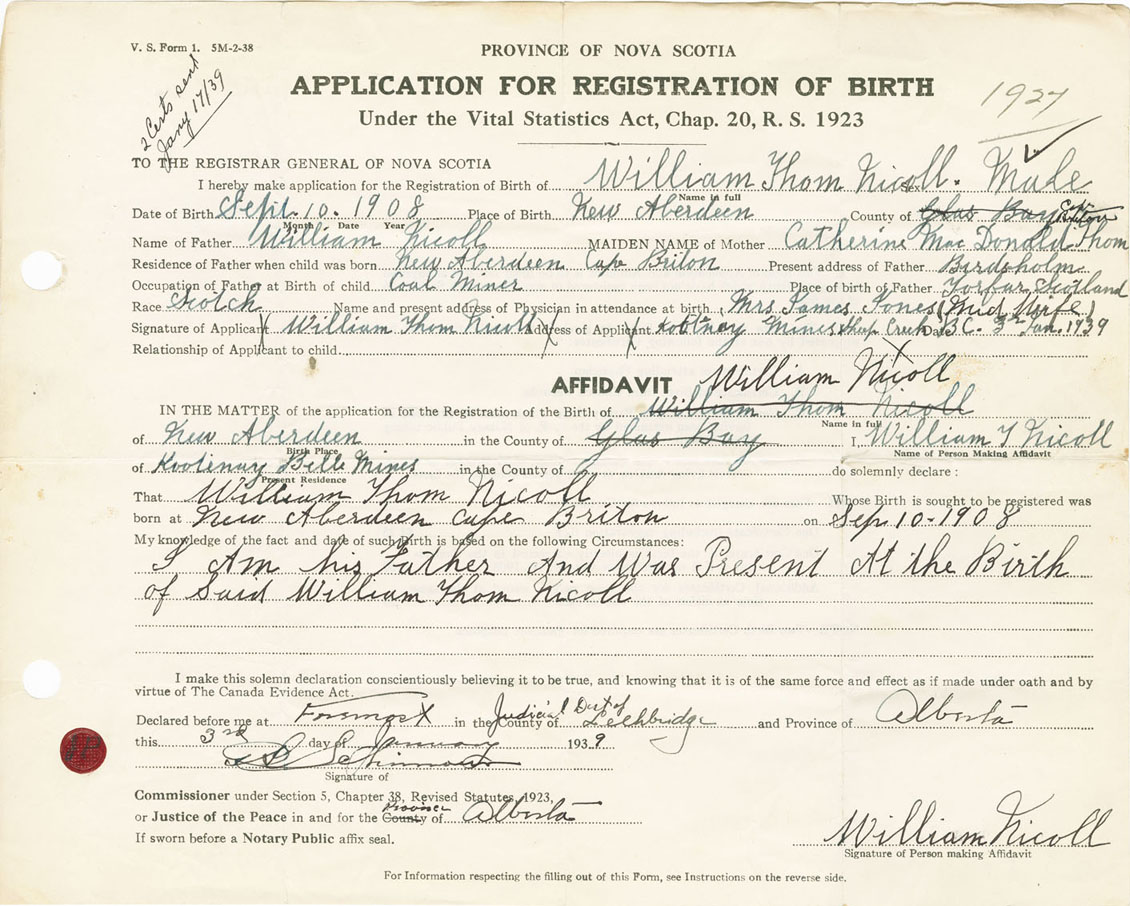 V. S. Form 1. 5M-2-38
PROVINCE OF NOVA SCOTIA
2 Certs sent
Jany 17/39
APPLICATION FOR REGISTRATION OF BIRTH
1927
Under the Vital Statistics Act, Chap. 20, R. S. 1923
TO THE REGISTRAR GENERAL OF NOVA SCOTIA
I hereby make application for the Registration of Birth of William Thom Nicoll. Sex Male
Name in full
Date of Birth Sept. 10. 1908 Place of Birth New Aberdeen County of Glas Bay Cape Briton
Month Date Year
Name of Father William Nicoll MAIDEN NAME of Mother Catherine Mac Donald Thom
Residence of Father when child was born New Aberdeen Cape Briton Present address of Father Birdsholm
Occupation of Father at Birth of child Coal Miner Place of birth of Father Forfar Scotland
Race Scotch Name and present address of Physician in attendance at birth Mrs James Jones (Mid Wife)
Signature of Applicant William Thom Nicoll Address of Applicant Kootnay Mines Sheep Creek Date B.C. 3rd Jan. 1939
Relationship of Applicant to child
AFFIDAVIT William Nicoll
IN THE MATTER of the application for the Registration of the Birth of William Thom Nicoll
Name in full
of New Aberdeen in the County of Glas Bay I William T Nicoll
Birth Place Name of Person Making Affidavit
of Kootenay Belle Mines in the County of do solemnly declare :
Present Residence
That William Thom Nicoll Whose Birth is sought to be registered was
born at New Aberdeen Cape Briton on Sep 10-1908
My knowledge of the fact and date of such Birth is based on the following Circumstances:
I Am his Father And Was Present At the Birth
of Said William Thom Nicoll
I make this solemn declaration conscientiously believing it to be true, and knowing that it is of the same force and effect as if made under oath and by
virtue of The Canada Evidence Act.
Declared before me at Foremost in the County of Judicial Dist of Lethbridge and Province of Alberta
this 3rd day of January 1939
Signature of
Commissioner under Section 5, Chapter 38, Revised Statutes, 1923,
or Justice of the Peace in and for the County Province of Alberta
If sworn before a Notary Public affix seal.
William Nicoll
Signature of Person making Affidavit
For Information respecting the filling out of this Form, see Instructions on the reverse side.